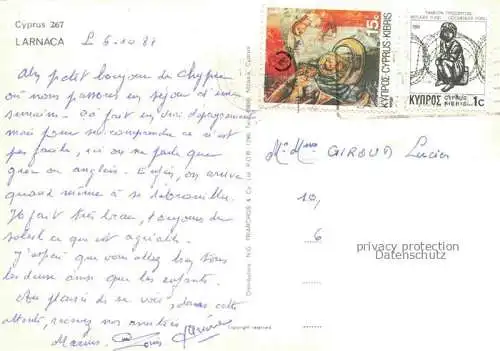 Cyprus 267
LARNACA
L 6.10.88
Un petit bonjour de Chypre
où nous passons un séjour d'une
semaine. Ça fait un vrai dépaysement
mais pour se comprendre ce n'est
pas facile, ici on ne parle que
grec ou anglais. Enfin, on arrive
quand même à se débrouiller.
Il fait très beau, toujours du
soleil ce qui est agréable.
J'espère que vous allez bien tous
les deux ainsi que les enfants.
Au plaisir de se voir, dans cette
attente, recevez nos amitiés
Marius
Distributors: N.G. FRANGHOS & Co Ltd P.O.B.
Nicosia, Cyprus
Copyright reserved
15c
ΚΥΠΡΟΣ-CYPRUS-KIBRIS
ΚΥΠΡΟΣ
CYPRUS
KIBRIS
1c
Mr Mme GIROUD Lucien
10,
6
privacy protection
Datenschutz